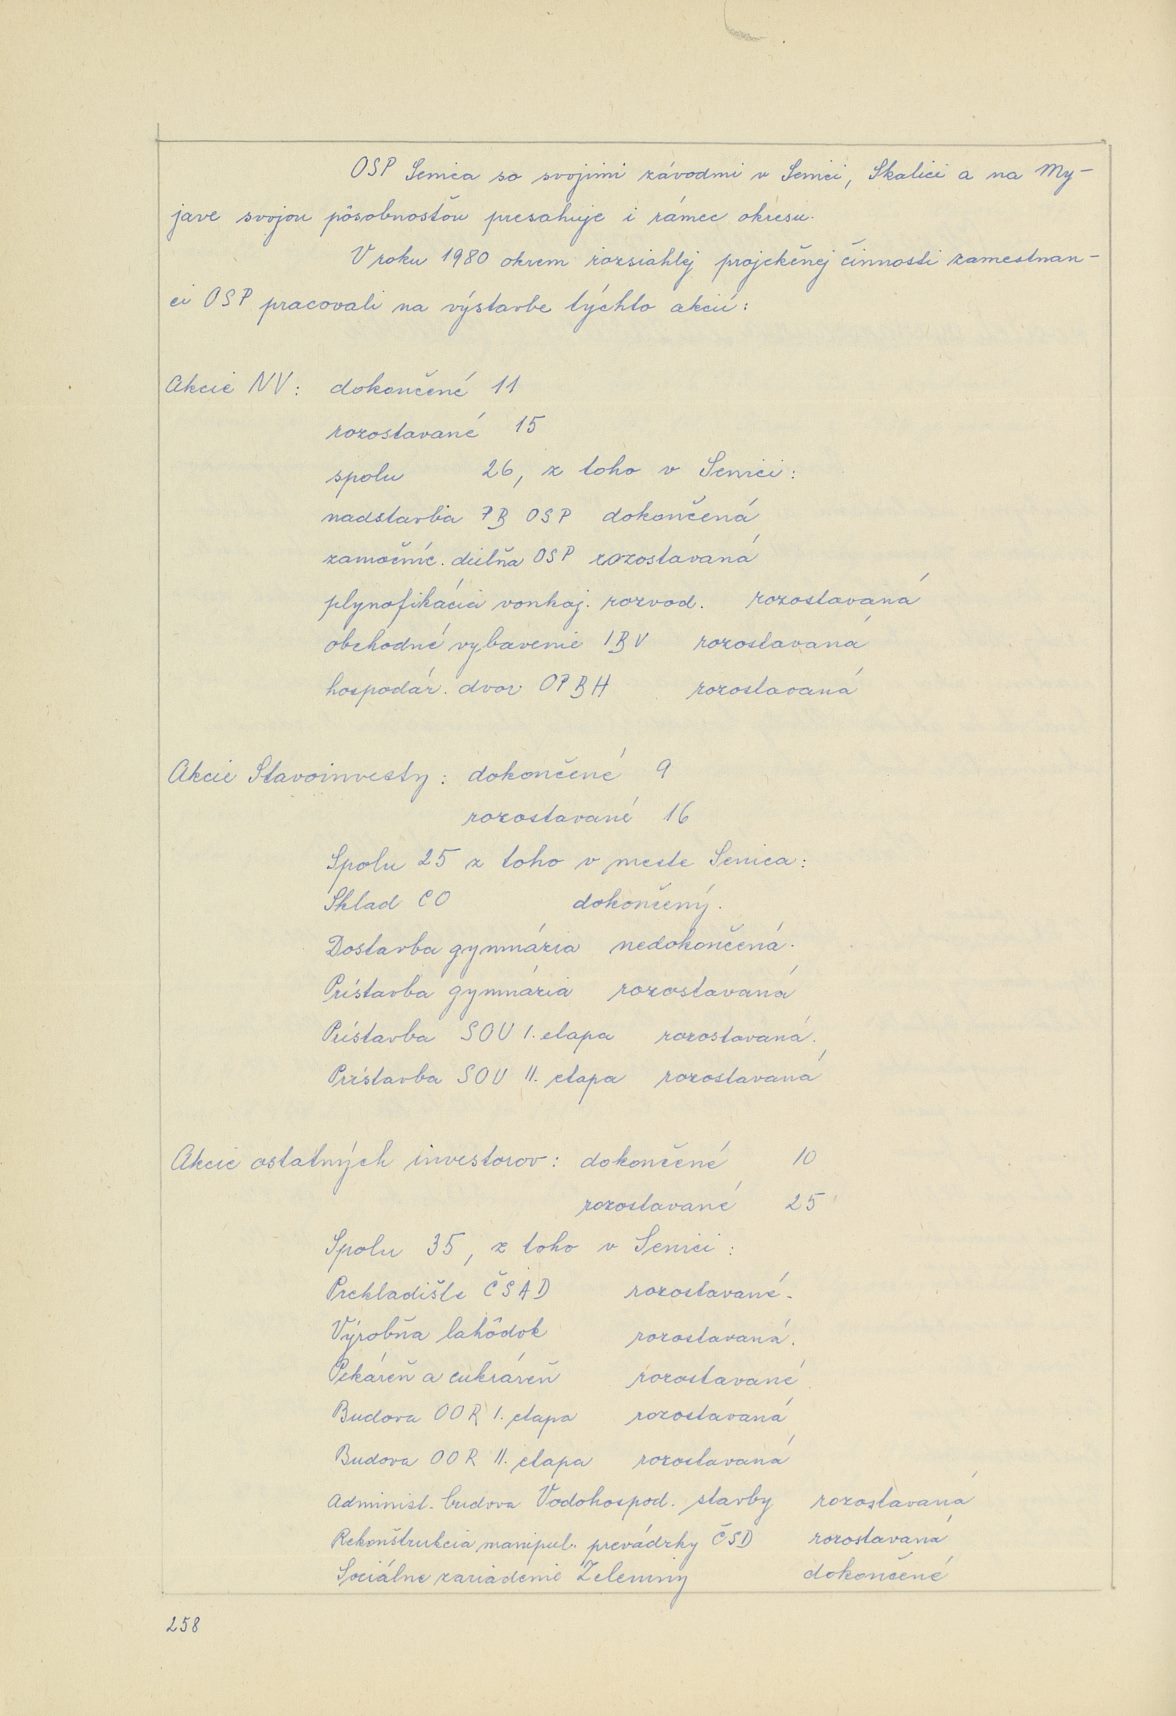 OSP Senica so svojimi závodmi v Senici, Skalici a na My-
jave svojou pôsobnosťou presahuje i rámec okresu.
V roku 1980 okrem rozsiahlej projekčnej činnosti zamestnan-
ci OSP pracovali na výstavbe týchto akcií:
Akcie NV: dokončené 11
rozostavané 15
spolu 26, z toho v Senici:
nadstavba PB OSP dokončená
zamočníc. dielňa OSP rozostavaná
plynofikácia vonkaj. rozvod. rozostavaná
obchodné vybavenie IBV rozostavaná
hospodár. dvor OPBH rozostavaná
Akcie Stavoinvesty: dokončené 9
rozostavané 16
Spolu 25 z toho v meste Senica:
Sklad CO dokončený.
Dostavba gymnázia nedokončená.
Prístavba gymnázia rozostavaná
Prístavba SOU I. etapa rozostavaná.
Prístavba SOU II. etapa rozostavaná
Akcie ostatných investorov: dokončené 10
rozostavané 25
Spolu 35, z toho v Senici:
Prekladište ČSAD rozostavané.
Výrobňa lahôdok rozostavaná.
Pekáreň a cukráreň rozostavané
Budova OOR I. etapa rozostavaná
Budova OOR II. etapa rozostavaná
Administ. budova Vodohospod. stavby rozostavaná
Rekonštrukcia manipul. prevádzky ČSD rozostavaná
Sociálne zariadenie Zeleniny dokončené
258